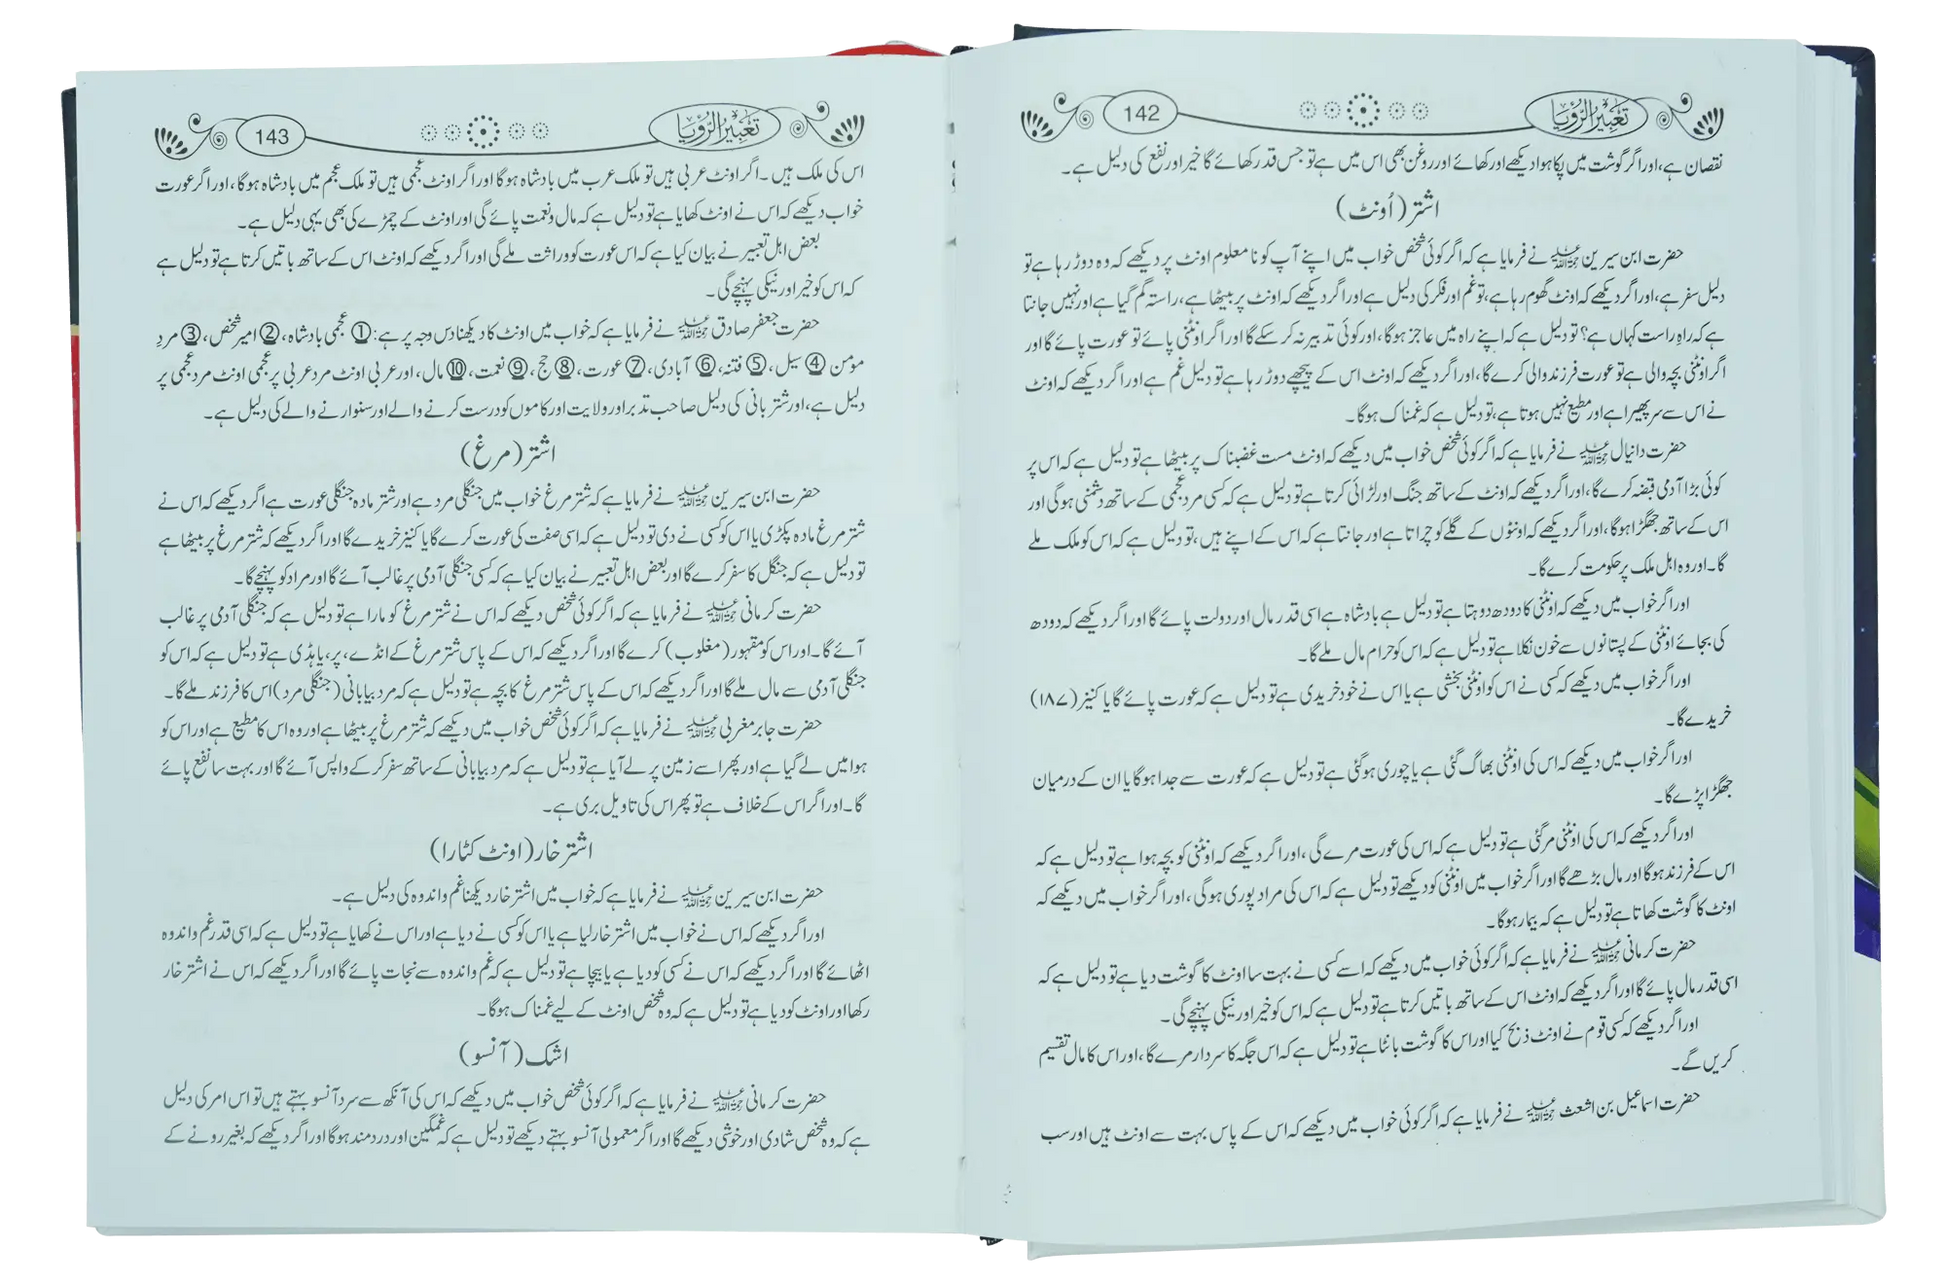 تعبیر الرؤیا
142
نقصان ہے، اور اگر گوشت میں پکا ہوا دیکھے اور کھائے اور روغن بھی اس میں ہے تو جس قدر کھائے گا خیر اور نفع کی دلیل ہے۔
اشتر (اُونٹ)
حضرت ابن سیرین رحمۃ اللہ علیہ نے فرمایا ہے کہ اگر کوئی شخص خواب میں اپنے آپ کو نا معلوم اونٹ پر دیکھے کہ وہ دوڑ رہا ہے تو
دلیل سفر ہے، اور اگر دیکھے کہ اونٹ گھوم رہا ہے، تو غم اور فکر کی دلیل ہے اور اگر دیکھے کہ اونٹ پر بیٹھا ہے، راستہ گم گیا ہے اور نہیں جانتا
ہے کہ راہِ راست کہاں ہے؟ تو دلیل ہے کہ اپنے راہ میں عاجز ہوگا، اور کوئی تدبیر نہ کر سکے گا اور اگر اونٹنی پائے تو عورت پائے گا اور
اگر اونٹنی بچہ والی ہے تو عورت فرزند والی کرے گا، اور اگر دیکھے کہ اونٹ اس کے پیچھے دوڑ رہا ہے تو دلیل غم ہے اور اگر دیکھے کہ اونٹ
نے اس سے سر پھیرا ہے اور مطیع نہیں ہوتا ہے، تو دلیل ہے کہ غمناک ہوگا۔
حضرت دانیال علیہ السلام نے فرمایا ہے کہ اگر کوئی شخص خواب میں دیکھے کہ اونٹ مست غضبناک پر بیٹھا ہے تو دلیل ہے کہ اس پر
کوئی بڑا آدمی قبضہ کرے گا، اور اگر دیکھے کہ اونٹ کے ساتھ جنگ اور لڑائی کرتا ہے تو دلیل ہے کہ کسی مرد عجمی کے ساتھ دشمنی ہوگی اور
اس کے ساتھ جھگڑا ہوگا، اور اگر دیکھے کہ اونٹوں کے گلے کو چراتا ہے اور جانتا ہے کہ اس کے اپنے ہیں، تو دلیل ہے کہ اس کو ملک ملے
گا۔ اور وہ اہل ملک پر حکومت کرے گا۔
اور اگر خواب میں دیکھے کہ اونٹنی کا دودھ دوہتا ہے تو دلیل ہے بادشاہ ہے اسی قدر مال اور دولت پائے گا اور اگر دیکھے کہ دودھ
کی بجائے اونٹنی کے پستانوں سے خون نکلا ہے تو دلیل ہے کہ اس کو حرام مال ملے گا۔
اور اگر خواب میں دیکھے کہ کسی نے اس کو اونٹنی بخشی ہے یا اس نے خود خریدی ہے تو دلیل ہے کہ عورت پائے گا یا کنیز (۱۸۷)
خریدے گا۔
اور اگر خواب میں دیکھے کہ اس کی اونٹنی بھاگ گئی ہے یا چوری ہوگئی ہے تو دلیل ہے کہ عورت سے جدا ہوگا یا ان کے درمیان
جھگڑا پڑے گا۔
اور اگر دیکھے کہ اس کی اونٹنی مر گئی ہے تو دلیل ہے کہ اس کی عورت مرے گی، اور اگر دیکھے کہ اونٹنی کو بچہ ہوا ہے تو دلیل ہے کہ
اس کے فرزند ہوگا اور مال بڑھے گا اور اگر خواب میں اونٹنی کو دیکھے تو دلیل ہے کہ اس کی مراد پوری ہوگی، اور اگر خواب میں دیکھے کہ
اونٹ کا گوشت کھاتا ہے تو دلیل ہے کہ بیمار ہوگا۔
حضرت کرمانی رحمۃ اللہ علیہ نے فرمایا ہے کہ اگر کوئی خواب میں دیکھے کہ اسے کسی نے بہت سا اونٹ کا گوشت دیا ہے تو دلیل ہے کہ
اسی قدر مال پائے گا اور اگر دیکھے کہ اونٹ اس کے ساتھ باتیں کرتا ہے تو دلیل ہے کہ اس کو خیر اور نیکی پہنچے گی۔
اور اگر دیکھے کہ کسی قوم نے اونٹ ذبح کیا اور اس کا گوشت بانٹا ہے تو دلیل ہے کہ اس جگہ کا سردار مرے گا، اور اس کا مال تقسیم
کریں گے۔
حضرت اسماعیل بن اشعث رحمۃ اللہ علیہ نے فرمایا ہے کہ اگر کوئی خواب میں دیکھے کہ اس کے پاس بہت سے اونٹ ہیں اور سب
تعبیر الرؤیا
143
اس کی ملک ہیں۔ اگر اونٹ عربی ہیں تو ملک عرب میں بادشاہ ہوگا اور اگر اونٹ عجمی ہیں تو ملک عجم میں بادشاہ ہوگا، اور اگر عورت
خواب دیکھے کہ اس نے اونٹ کھایا ہے تو دلیل ہے کہ مال و نعمت پائے گی اور اونٹ کے چمڑے کی بھی یہی دلیل ہے۔
بعض اہل تعبیر نے بیان کیا ہے کہ اس عورت کو وراثت ملے گی اور اگر دیکھے کہ اونٹ اس کے ساتھ باتیں کرتا ہے تو دلیل ہے
کہ اس کو خیر اور نیکی پہنچے گی۔
حضرت جعفر صادق رحمۃ اللہ علیہ نے فرمایا ہے کہ خواب میں اونٹ کا دیکھنا دس وجہ پر ہے: ① عجمی بادشاہ، ② امیر شخص، ③ مردِ
مؤمن ④ سیل، ⑤ فتنہ، ⑥ آبادی، ⑦ عورت، ⑧ حج، ⑨ نعمت، ⑩ مال، اور عربی اونٹ مرد عربی پر عجمی اونٹ مرد عجمی پر
دلیل ہے، اور شتر بانی کی دلیل صاحب تدبر اور ولایت اور کاموں کو درست کرنے والے اور سنوارنے والے کی دلیل ہے۔
اشتر (مرغ)
حضرت ابن سیرین رحمۃ اللہ علیہ نے فرمایا ہے کہ شتر مرغ خواب میں جنگلی مرد ہے اور شتر مادہ جنگلی عورت ہے اگر دیکھے کہ اس نے
شتر مرغ مادہ پکڑی یا اس کو کسی نے دی تو دلیل ہے کہ اسی صفت کی عورت کرے گا یا کنیز خریدے گا اور اگر دیکھے کہ شتر مرغ پر بیٹھا ہے
تو دلیل ہے کہ جنگل کا سفر کرے گا اور بعض اہل تعبیر نے بیان کیا ہے کہ کسی جنگلی آدمی پر غالب آئے گا اور مراد کو پہنچے گا۔
حضرت کرمانی رحمۃ اللہ علیہ نے فرمایا ہے کہ اگر کوئی شخص دیکھے کہ اس نے شتر مرغ کو مارا ہے تو دلیل ہے کہ جنگلی آدمی پر غالب
آئے گا۔ اور اس کو مقہور (مغلوب) کرے گا اور اگر دیکھے کہ اس کے پاس شتر مرغ کے انڈے، پر، یا ہڈی ہے تو دلیل ہے کہ اس کو
جنگلی آدمی سے مال ملے گا اور اگر دیکھے کہ اس کے پاس شتر مرغ کا بچہ ہے تو دلیل ہے کہ مرد بیابانی (جنگلی مرد) اس کا فرزند ملے گا۔
حضرت جابر مغربی رحمۃ اللہ علیہ نے فرمایا ہے کہ اگر کوئی شخص خواب میں دیکھے کہ شتر مرغ پر بیٹھا ہے اور وہ اس کا مطیع ہے اور اس کو
ہوا میں لے گیا ہے اور پھر اسے زمین پر لے آیا ہے تو دلیل ہے کہ مرد بیابانی کے ساتھ سفر کر کے واپس آئے گا اور بہت سا نفع پائے
گا۔ اور اگر اس کے خلاف ہے تو پھر اس کی تاویل بری ہے۔
اشتر خار (اونٹ کٹارا)
حضرت ابن سیرین رحمۃ اللہ علیہ نے فرمایا ہے کہ خواب میں اشتر خار دیکھنا غم و اندوہ کی دلیل ہے۔
اور اگر دیکھے کہ اس نے خواب میں اشتر خار لیا ہے یا اس کو کسی نے دیا ہے اور اس نے کھایا ہے تو دلیل ہے کہ اسی قدر غم و اندوہ
اٹھائے گا اور اگر دیکھے کہ اس نے کسی کو دیا ہے یا بیچا ہے تو دلیل ہے کہ غم و اندوہ سے نجات پائے گا اور اگر دیکھے کہ اس نے اشتر خار
رکھا اور اونٹ کو دیا ہے تو دلیل ہے کہ وہ شخص اونٹ کے لیے غمناک ہوگا۔
اشک (آنسو)
حضرت کرمانی رحمۃ اللہ علیہ نے فرمایا ہے کہ اگر کوئی شخص خواب میں دیکھے کہ اس کی آنکھ سے سرد آنسو بہتے ہیں تو اس امر کی دلیل
ہے کہ وہ شخص شادی اور خوشی دیکھے گا اور اگر معمولی آنسو بہتے دیکھے تو دلیل ہے کہ غمگین اور دردمند ہوگا اور اگر دیکھے کہ بغیر رونے کے